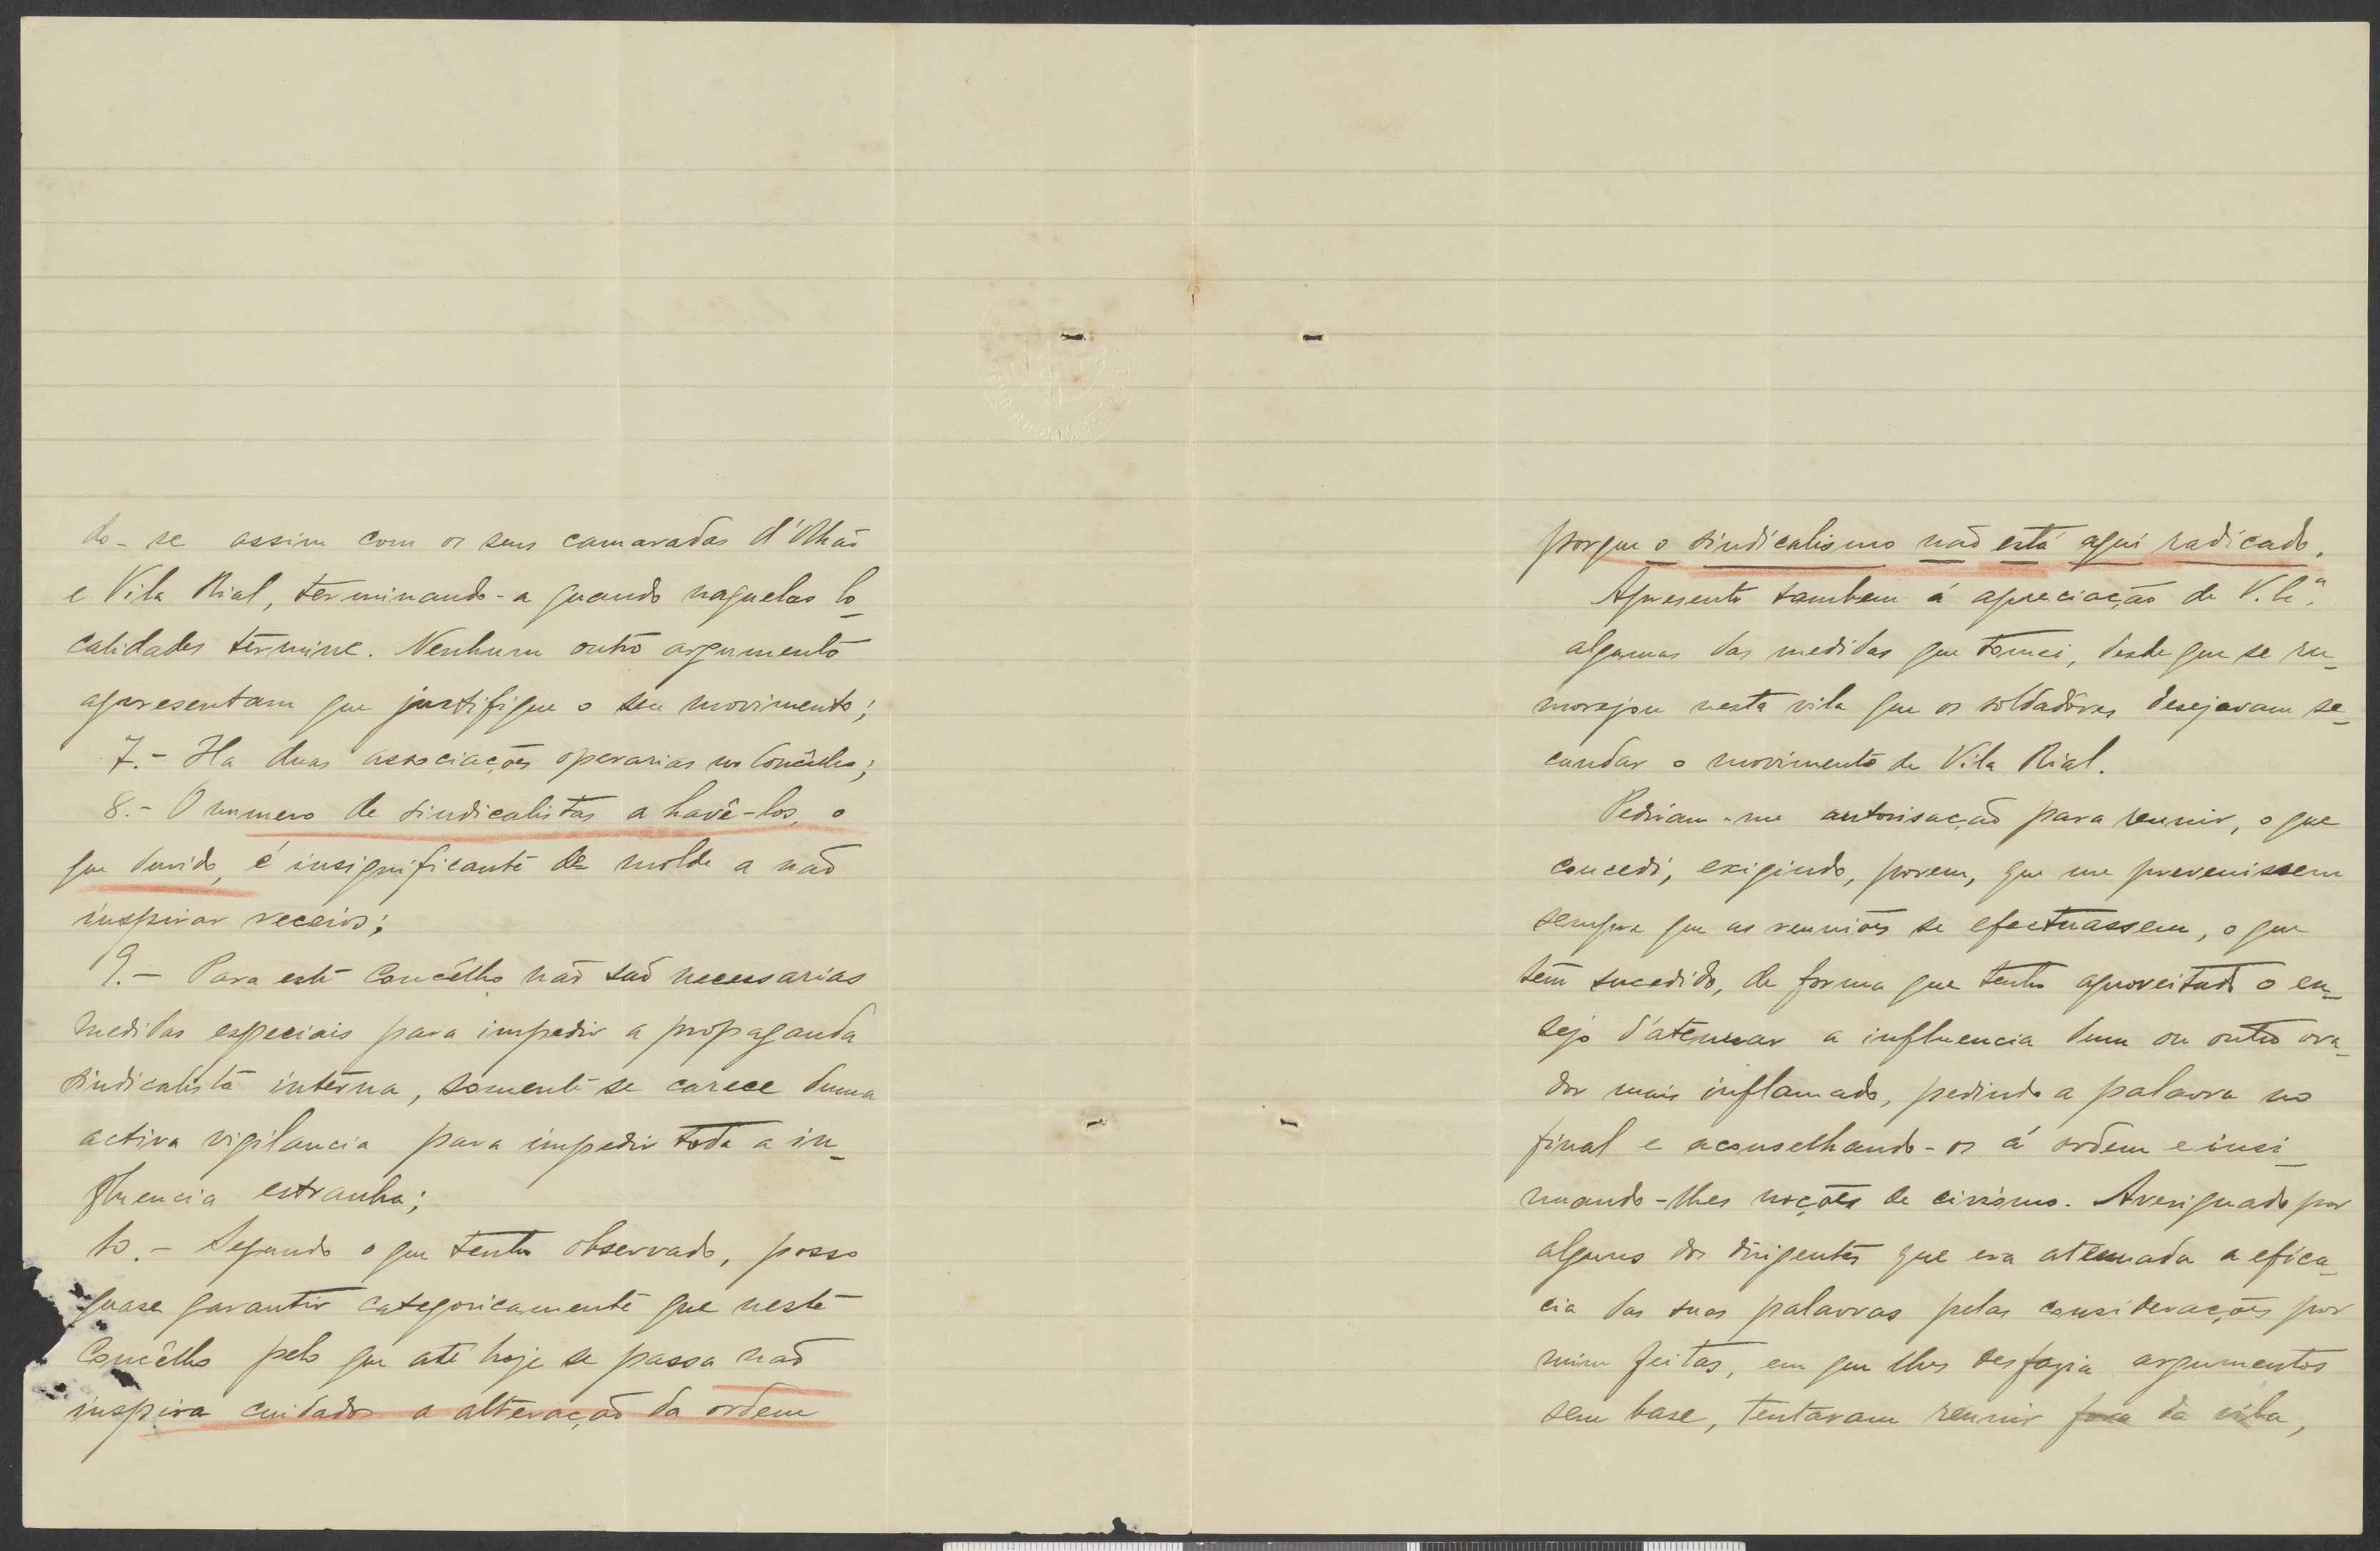 do-se assim com os seus camaradas d'Olhão
e Vila Rial, terminando-a quando naquelas lo-
calidades términe. Nenhum outro argumento
apresentam que justifique o seu movimento;
7.- Ha duas associações operarias no Concêlho;
8.- O numero de sindicalistas a havê-los, o
que duvido, é insignificante de molde a não
inspirar receios;
9.- Para este Concêlho não são necessarias
medidas especiais para impedir a propaganda
sindicalista interna, somente se carece duma
activa vigilancia para impedir toda a in-
fluencia estranha;
10.- Segundo o que tenho observado, posso
quase garantir categoricamente que neste
Concêlho pelo que até hoje se passa não
inspira cuidados a alteração da ordem
porque o sindicalismo não está aqui radicado.
Apresento tambem á apreciação de V. Ex.ª
algumas das medidas que tomei, desde que se ru-
morejou nesta vila que os soldadores desejavam se-
cundar o movimento de Vila Rial.
Pediram-me autorisação para reunir, o que
concedi, exigindo, porem, que me prevenissem
sempre que as reuniões se efectuassem, o que
tem sucedido, de forma que tenho aproveitado o en-
sejo d'atenuar a influencia dum ou outro ora-
dor mais inflamado, pedindo a palavra no
final e aconselhando-os á ordem e insi-
nuando-lhes noções de civismo. Averiguado por
alguns dos dirigentes que era atenuada a efica-
cia das suas palavras pelas considerações por
mim feitas, em que lhes desfazia argumentos
sem base, tentaram reunir fora da vila,